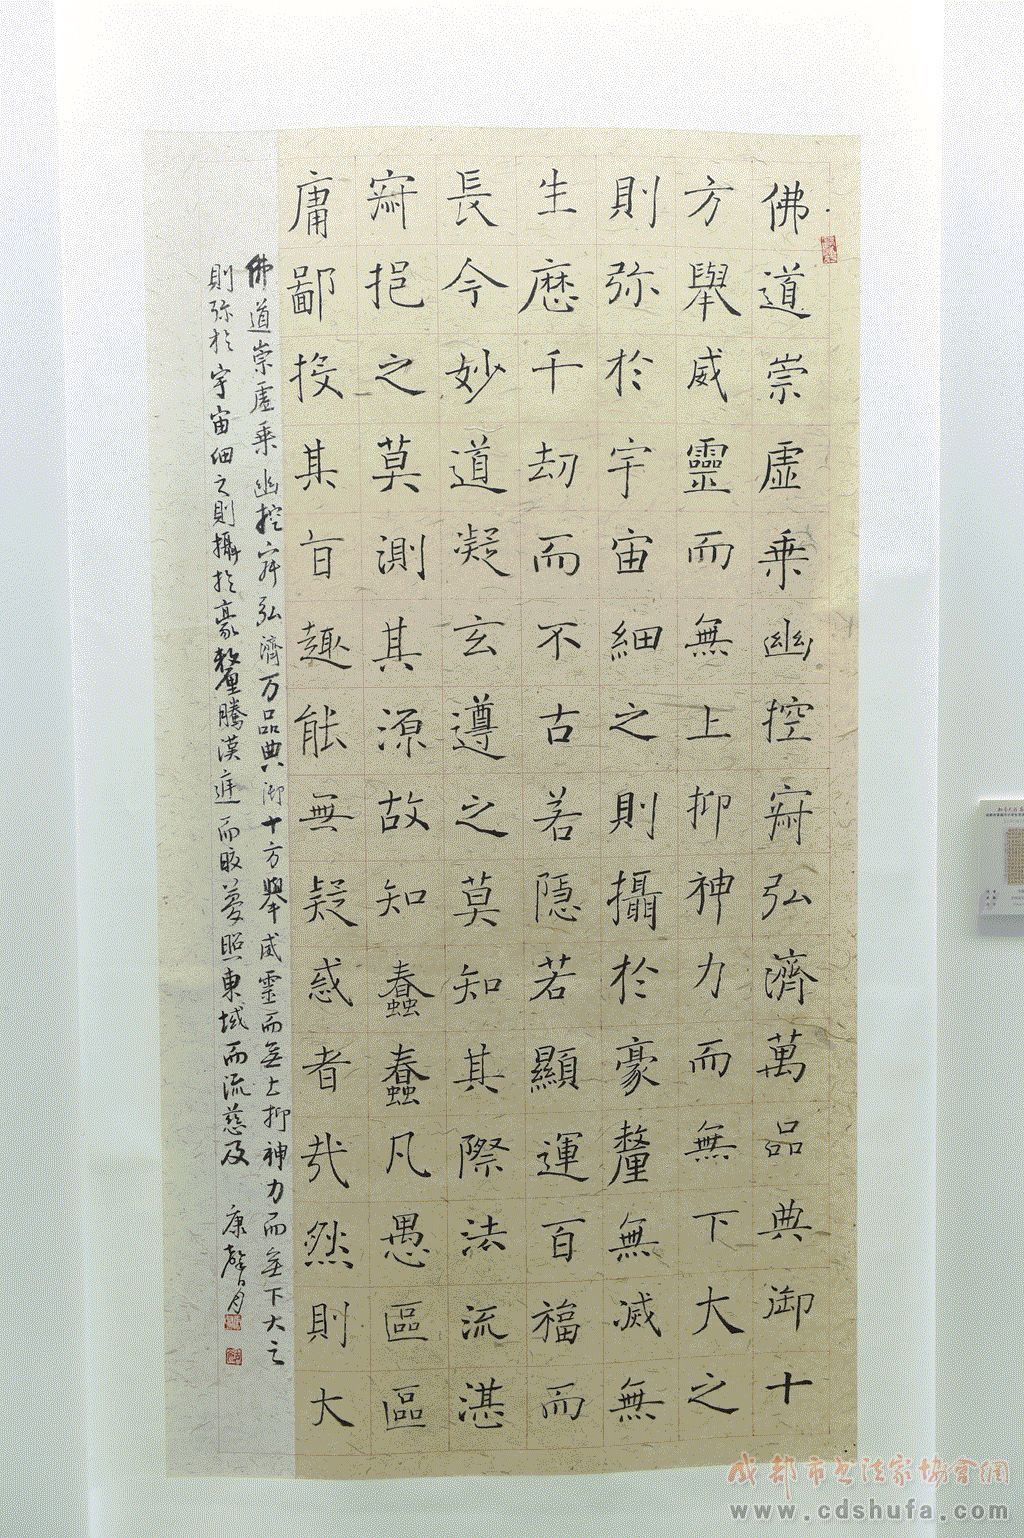 佛道崇虛乗幽控寂弘濟萬品典御十
方舉威靈而無上抑神力而無下大之
則弥於宇宙細之則攝於豪釐無滅無
生歷千劫而不古若隱若顯運百福而
長今妙道凝玄遵之莫知其際法流湛
寂挹之莫測其源故知蠢蠢凡愚區區
庸鄙投其旨趣能無疑惑者哉然則大
佛道崇虛乗幽控寂弘濟万品典御十方舉威靈而無上抑神力而無下大之
則弥於宇宙細之則攝於豪釐騰漢庭而皎夢照東域而流慈及 康馨月
成都市书法家協會網
www.cdshufa.com